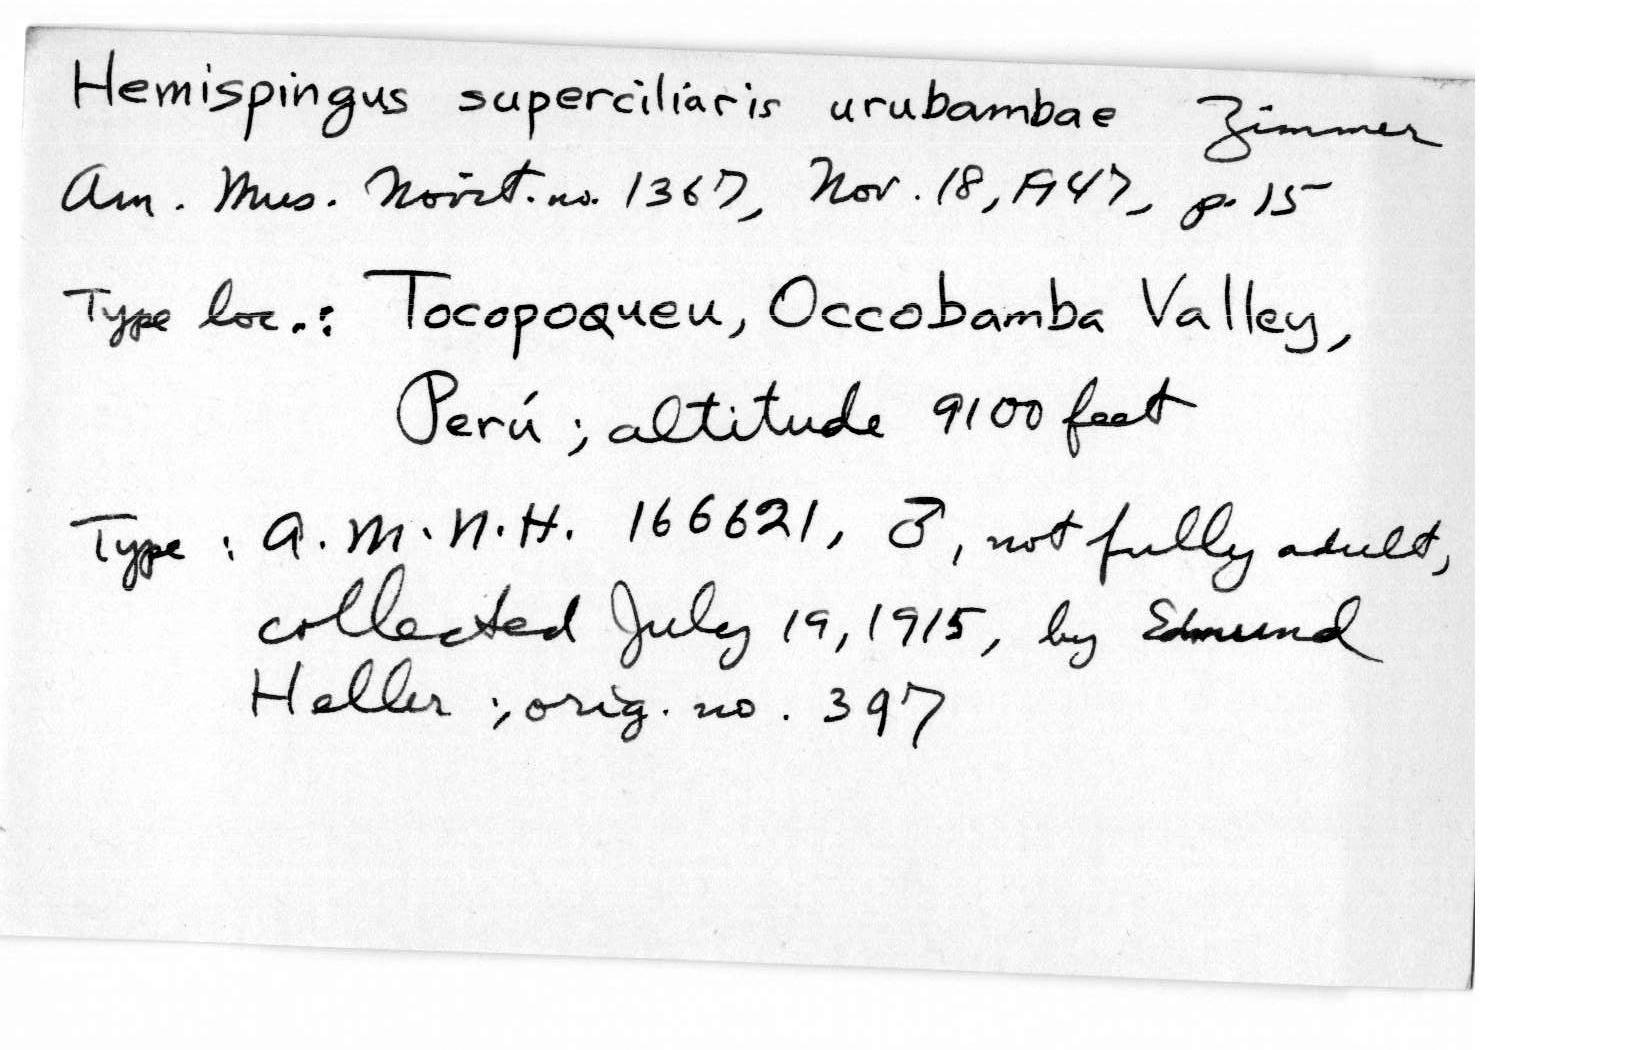 Hemispingus superciliaris urubambae Zimmer
Am. Mus. Novit. no. 1367, Nov. 18, 1947, p. 15
Type loc.: Tocopoqueu, Occobamba Valley,
Perú; altitude 9100 feet
Type: A.M.N.H. 166621, ♂, not fully adult,
collected July 19, 1915, by Edmund
Heller; orig. no. 397